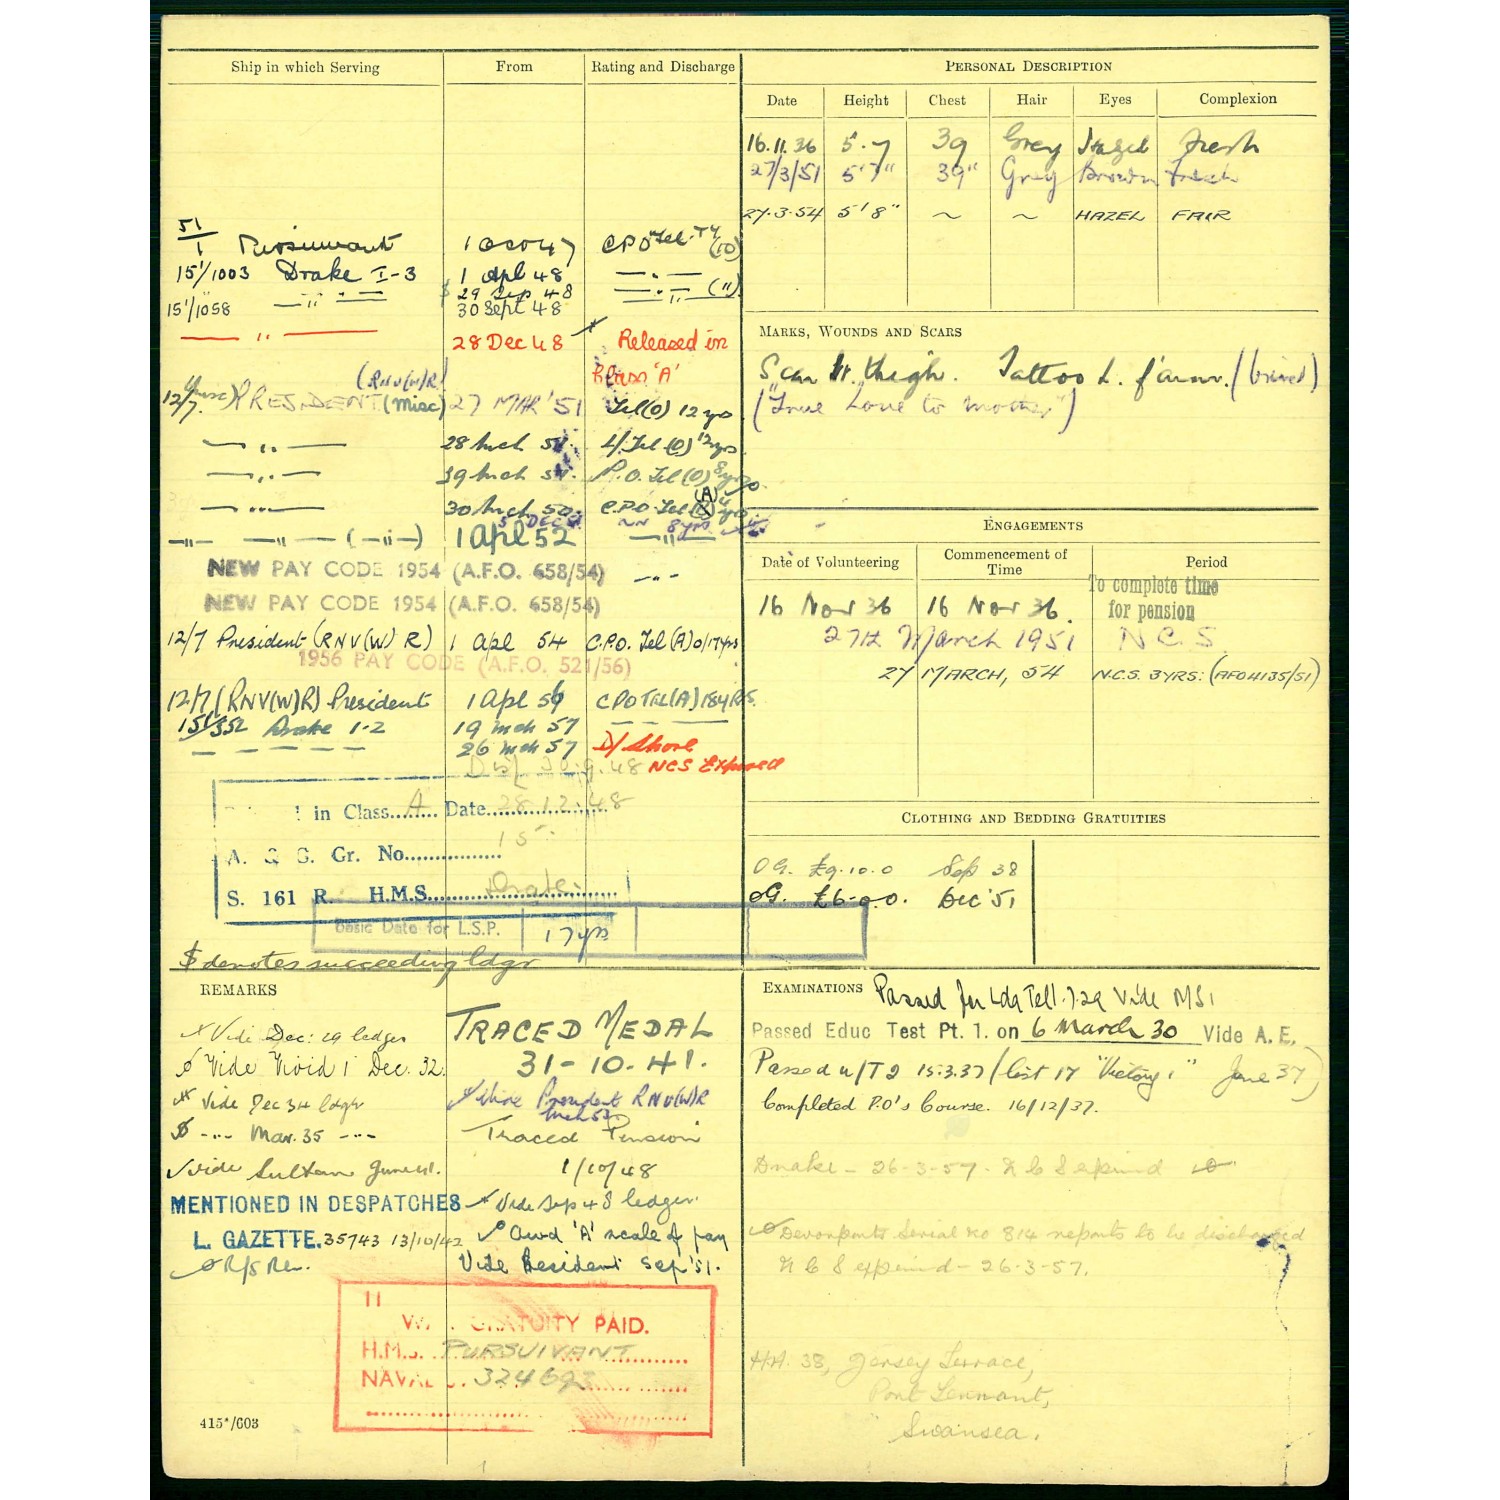 Ship in which Serving From Rating and Discharge
51/1 1 Oct 47 CPO Tel. Ty (10)
15'/1003 Drake I-3 1 Apl 48 — . — (")
$ 29 Sep 48
15'/1058 — " — 30 Sept 48 — " —
— " — 28 Dec 48 Released in
Class 'A'
(RNV(W)R)
12/7. PRESIDENT (Misc) 27 MAR '51 Tel(O) 12 yrs
— " — 28 Mch 51. L/Tel (O) 12 yrs.
— " — 29 Mch 51. P.O. Tel (O) 8 yrs
— " — 30 Mch C.P.O Tel (A) yrs.
8 yrs.
— " — — " — (— " —) 1 Apl 52 — " —
NEW PAY CODE 1954 (A.F.O. 658/54) — " —
NEW PAY CODE 1954 (A.F.O. 658/54)
12/7 President (RNV(W)R) 1 Apl 54 C.P.O. Tel (A) 0/17 yrs
1956 PAY CODE (A.F.O. 521/56)
12/7 (RNV(W)R) President 1 Apl 56 CPO TEL(A) 18 YRS.
15'/352 Drake 1-2 19 Mch 57 — — — —
— — — — — 26 Mch 57 D/ Shore
30.9.48 NCS Expired
in Class A Date 28.12.48
A. & G. Gr. No. 15
S. 161 R. H.M.S. Drake
Basic Date for L.S.P. 17 yrs
$ denotes succeeding ldgr
PERSONAL DESCRIPTION
Date Height Chest Hair Eyes Complexion
16.11.36 5.7 39 Grey Hazel Fresh
27/3/51 5'7" 39" Grey Brown Fresh
27.3.54 5'8" ~ ~ HAZEL FAIR
MARKS, WOUNDS AND SCARS
Scar thigh. Tattoo L. f'arm.
("True Love to Mother")
ENGAGEMENTS
Date of Volunteering Commencement of Time Period
To complete time
for pension
16 Nov 36 16 Nov 36.
27th March 1951 N.C.S.
27 MARCH, 54 N.C.S. 3YRS: (AFO4135/51)
CLOTHING AND BEDDING GRATUITIES
OG. £9.10.0 Sep 38
OG. £6-0.0. Dec '51
REMARKS
Vide Dec: 29 ledger
ø Vide Vivid 1 Dec. 32.
Vide Dec 34 ldgr
$ -"- Mar. 35 -"-
√ vide Sultan June 41.
MENTIONED IN DESPATCHES
L. GAZETTE. 35743 13/10/42
TRACED MEDAL
31-10-41.
President RNV(W)R
Traced Pension
1/10/48
Vide Sep 48 ledger.
Awd 'A' scale of pay
Vide President Sep '51.
11
GRATUITY PAID.
H.M.S. PURSUIVANT
NAVAL 324693
415*/603
EXAMINATIONS Passed for Ldg Tel 1.7.29 Vide MS1
Passed Educ Test Pt. 1. on 6 March 30 Vide A.E.
Passed W/T 2 15.3.37 (List 17 "Victory 1" June 37)
Completed P.O's Course. 16/12/37.
Drake - 26-3-57. N C S expired
Devonports Serial No 814 reports to be discharged
N C S expired - 26-3-57.
H.A. 38, Jersey Terrace,
Port Tennant,
Swansea.